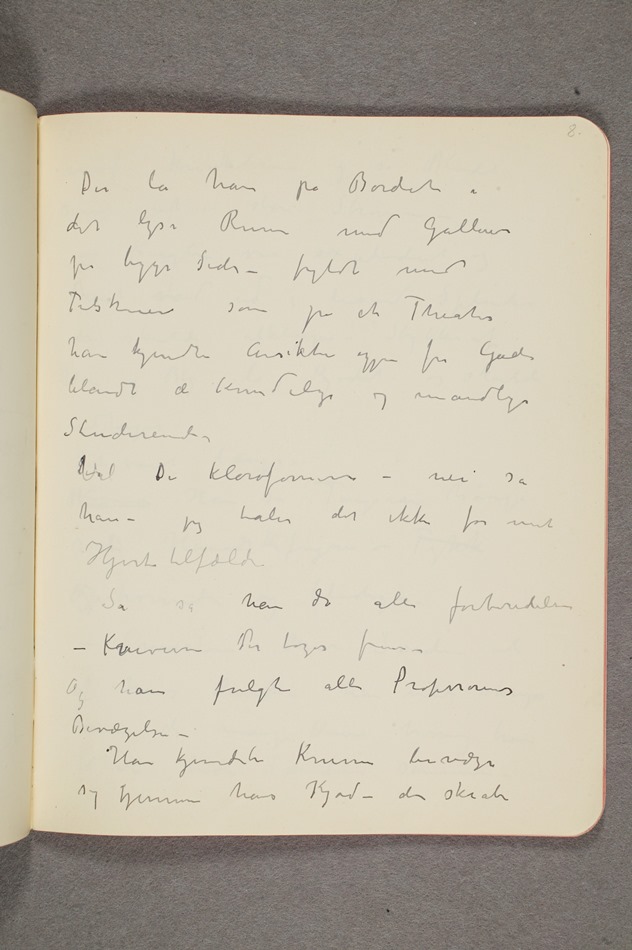 8.
Der la han på Bordet i
det lyse Rum med Gallerier
på begge Sider – fyldt med
Tilskuere som på et Theater
han kjendte Ansikter oppe fra Gaden
blandt de kvindelige og mandlige
Studerende
Vil De kloroformeres – nei sa
han – jeg tåler det ikke for mit
Hjertetilfælde
Så så han da alle forberedelser
– Knivene der toges frem –
Og han fulgte alle Professorens
Bevægelser –
Han kjendte Kniven bevæge
sig gjennem hans Kjød – den skrabte